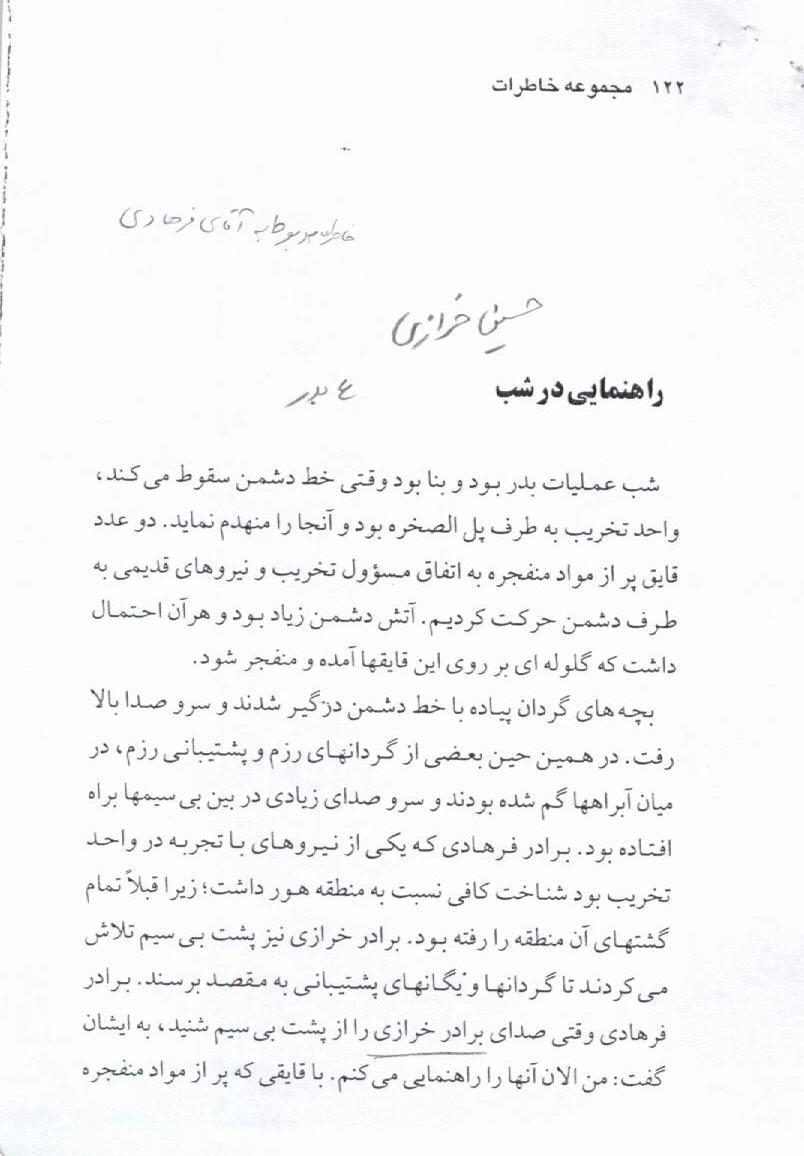 ۱۲۲ مجموعه خاطرات
خاطرات مربوط به آقای فرهادی
حسین خرازی
راهنمایی در شب
ع بدر
شب عملیات بدر بود و بنا بود وقتی خط دشمن سقوط می‌کند،
واحد تخریب به طرف پل الصخره بود و آنجا را منهدم نماید. دو عدد
قایق پر از مواد منفجره به اتفاق مسؤول تخریب و نیروهای قدیمی به
طرف دشمن حرکت کردیم. آتش دشمن زیاد بود و هرآن احتمال
داشت که گلوله ای بر روی این قایقها آمده و منفجر شود.
بچه‌های گردان پیاده با خط دشمن درگیر شدند و سرو صدا بالا
رفت. در همین حین بعضی از گردانهای رزم و پشتیبانی رزم، در
میان آبراهها گم شده بودند و سرو صدای زیادی در بین بی‌سیمها براه
افتاده بود. برادر فرهادی که یکی از نیروهای با تجربه در واحد
تخریب بود شناخت کافی نسبت به منطقه هور داشت؛ زیرا قبلاً تمام
گشتهای آن منطقه را رفته بود. برادر خرازی نیز پشت بی‌سیم تلاش
می‌کردند تا گردانها و یگانهای پشتیبانی به مقصد برسند. برادر
فرهادی وقتی صدای برادر خرازی را از پشت بی‌سیم شنید، به ایشان
گفت: من الان آنها را راهنمایی می‌کنم. با قایقی که پر از مواد منفجره